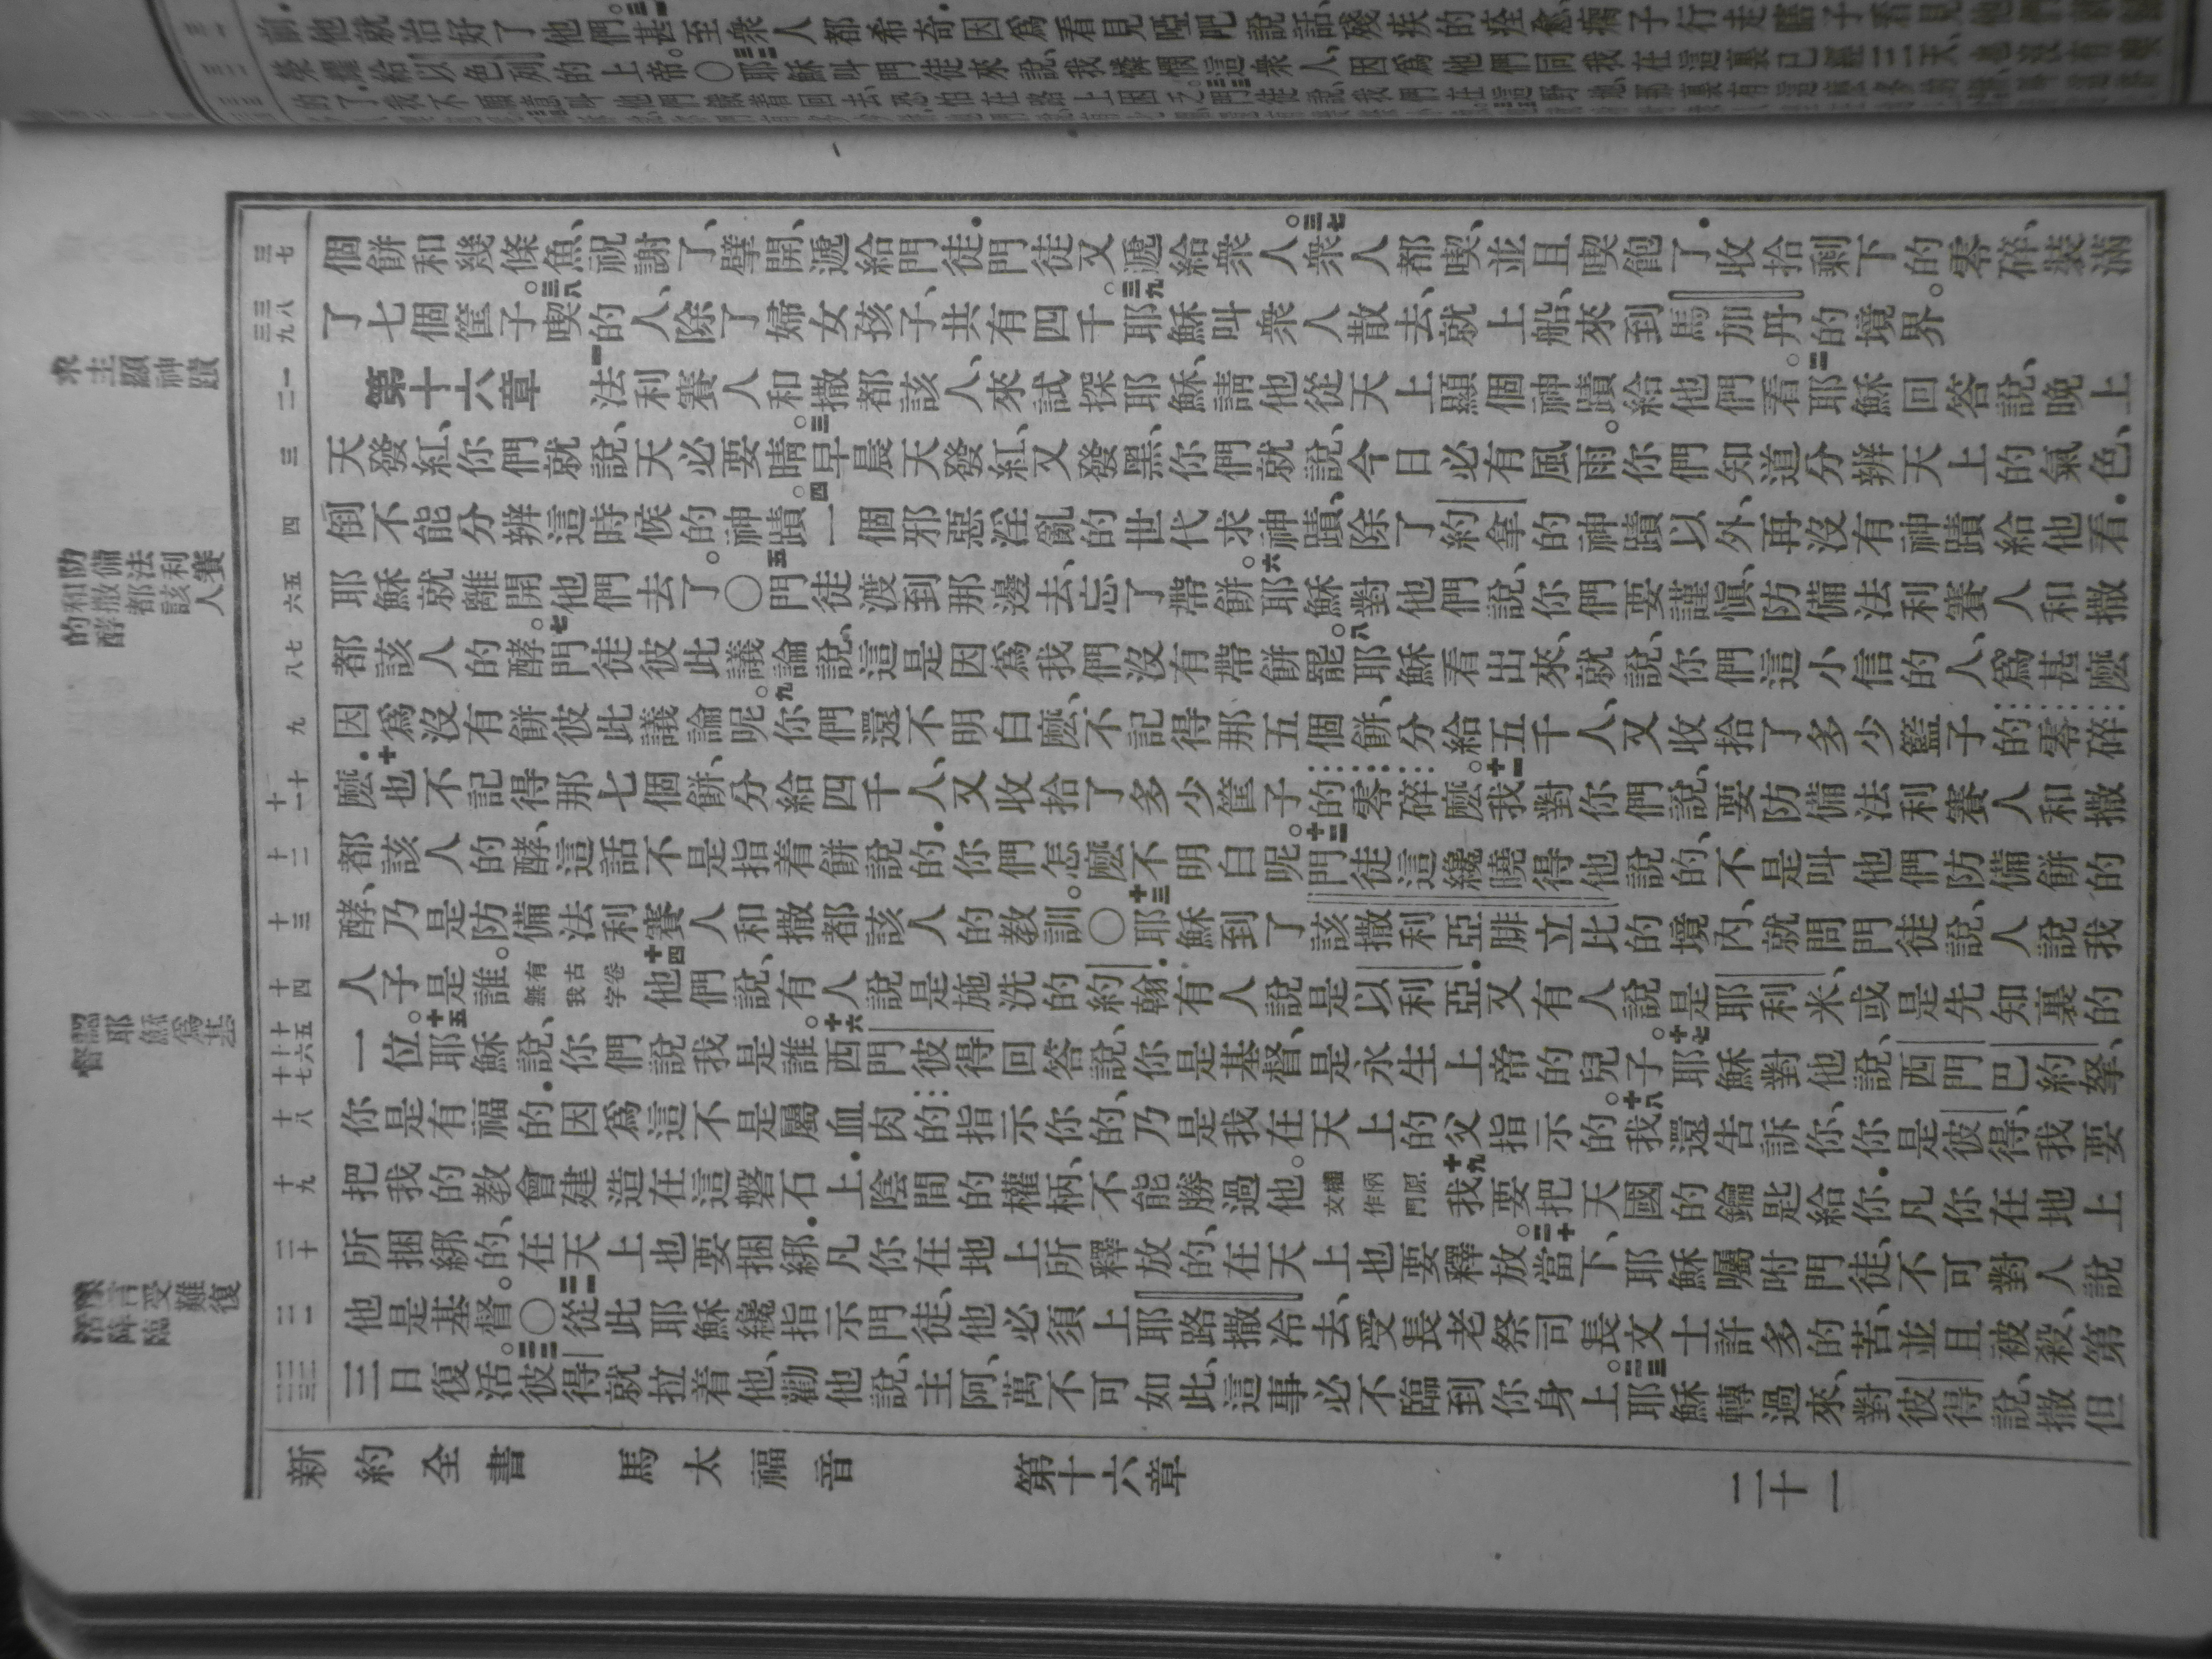 他就治好了他們甚至衆人都希奇因爲看見啞吧說話殘疾的痊愈瘸子行走瞎子看見他們
榮耀給以色列的上帝。〇耶穌叫門徒來說、我憐憫這衆人、因爲他們同我在這裏已經三天、
求主顯神蹟
防備法利賽人和撒都該人的酵
認耶穌爲基督
受難復活降臨
三七
個餅和幾條魚、祝謝了、擘開、遞給門徒．門徒又遞給衆人。三七衆人都喫、並且喫飽了．收拾剩下的零碎、裝滿
三八 三九
了七個筐子。三八喫的人、除了婦女孩子、共有四千。三九耶穌叫衆人散去、就上船、來到馬加丹的境界。
一 二
第十六章 一法利賽人和撒都該人、來試探耶穌、請他從天上顯個神蹟給他們看。二耶穌回答說、晚上
三
天發紅、你們就說、天必要晴。三早晨天發紅、又發黑、你們就說、今日必有風雨。你們知道分辨天上的氣色、
四
倒不能分辨這時候的神蹟。四一個邪惡淫亂的世代求神蹟、除了約拿的神蹟以外、再沒有神蹟給他看．
五 六
耶穌就離開他們去了。〇五門徒渡到那邊去、忘了帶餅。六耶穌對他們說、你們要謹愼、防備法利賽人和撒
七 八
都該人的酵。七門徒彼此議論說、這是因爲我們沒有帶餅罷。八耶穌看出來、就說、你們這小信的人、爲甚麽
九
因爲沒有餅彼此議論呢。九你們還不明白麽、不記得那五個餅、分給五千人、又收拾了多少籃子的零碎
十 十一
麽．十也不記得那七個餅、分給四千人、又收拾了多少筐子的零碎麽。十一我對你們說、要防備法利賽人和撒
十二
都該人的酵、這話不是指着餅說的．你們怎麽不明白呢。十二門徒這纔曉得他說的、不是叫他們防備餅的
十三
酵、乃是防備法利賽人和撒都該人的教訓。〇十三耶穌到了該撒利亞腓立比的境內、就問門徒說、人說我
十四
人子是誰。有古卷無我字十四他們說、有人說是施洗的約翰．有人說是以利亞．又有人說是耶利米、或是先知裏的
十五 十六 十七
一位。十五耶穌說、你們說我是誰。十六西門彼得回答說、你是基督、是永生上帝的兒子。十七耶穌對他說、西門巴約拏、
十八
你是有福的．因爲這不是屬血肉的指示你的、乃是我在天上的父指示的。十八我還告訴你、你是彼得、我要
十九
把我的教會建造在這磐石上．陰間的權柄、不能勝過他。權柄原文作門十九我要把天國的鑰匙給你．凡你在地上
二十
所捆綁的、在天上也要捆綁．凡你在地上所釋放的、在天上也要釋放。二十當下、耶穌囑咐門徒、不可對人說
二一
他是基督。〇二一從此耶穌纔指示門徒、他必須上耶路撒冷去、受長老祭司長文士許多的苦、並且被殺、第
二二 二三
三日復活。二二彼得就拉着他、勸他說、主阿、萬不可如此、這事必不臨到你身上。二三耶穌轉過來、對彼得說、撒但
新約全書 馬太福音 第十六章 二十一